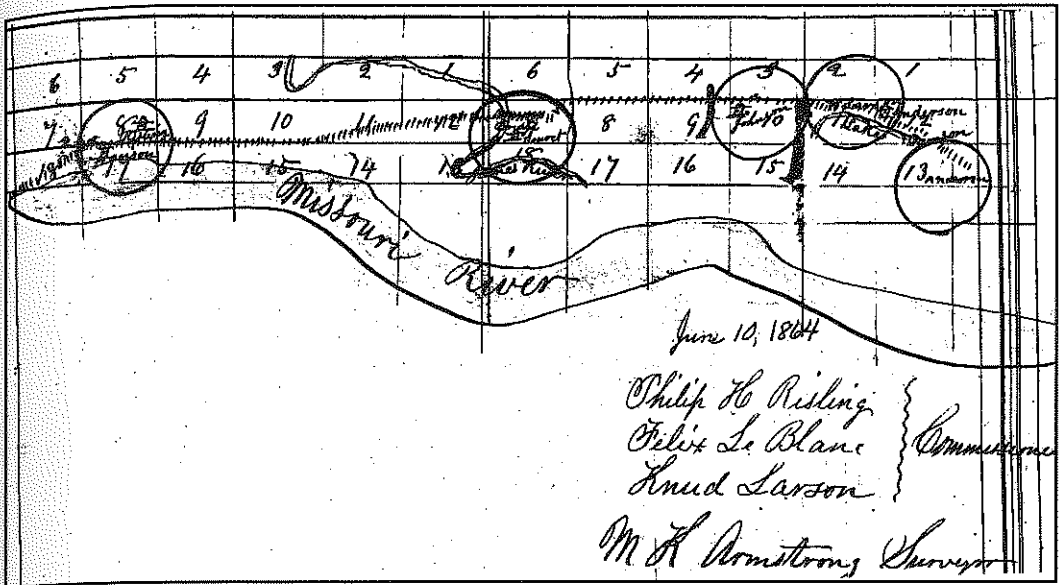 6 5 4 3 2 1 6 5 4 3 2 1
7 9 10 11 12 8 9 Anderson
Lake
18 17 16 15 14 13 18 17 16 15 14 13 Anderson
Missouri River
June 10, 1864
Philip H Risling
Felix Le Blanc
Knud Larson
Commissione
M K Armstrong Surveyor